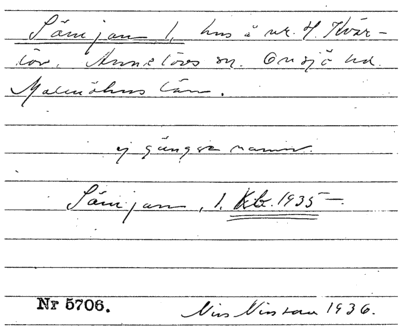 Sånjan 1, hus å nr. 4 Tvär-
löv. Annelövs sn. Onsjö hd.
Malmöhus län.
ej gängse namn.
Sånjan, 1. Kbr. 1935 —
Nr 5706.
Nils Nilsson 1936.